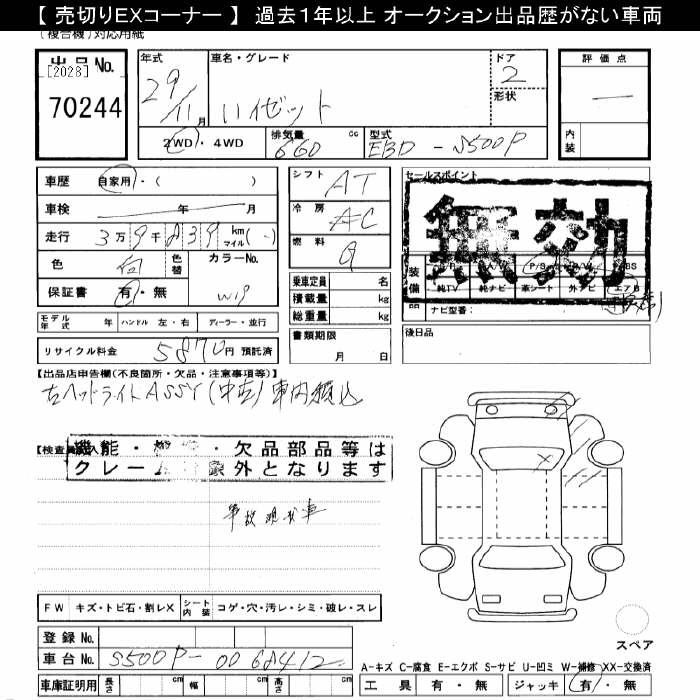 【 売切りEXコーナー 】 過去１年以上 オークション出品歴がない車両
(複合機)対応用紙
出品 No.
[2028]
70244
年式
29
11月
車名・グレード
ハイゼット
ドア
2
形状
評価点
内装
2WD・4WD
排気量 cc
660
型式
EBD - S500P
車歴 自家用・( )
車検 年 月
走行 3万9千839 km マイル
色 白 色替 カラーNo.
保証書 有・無 W19
シフト AT
冷房 AC
燃料 G
乗車定員 名
積載量 kg
総重量 kg
セールスポイント
無効
装備
P/S ABS
純TV 純ナビ 革シート 外ナビ エアB
ナビ型番:
モデル年式 年 ハンドル 左・右 ディーラー・並行
書類期限
月 日
後日品
リサイクル料金 5870円 預託済
【出品店申告欄(不良箇所・欠品・注意事項等)】
右ヘッドライトASSY(中古)車内積込
機能・ ・欠品部品等は
クレーム対象外となります
事故現状車
FW キズ・トビ石・割レX シート内装 コゲ・穴・汚レ・シミ・破レ・スレ
登録 No.
車台 No. S500P-0068412
スペア
A-キズ C-腐食 E-エクボ S-サビ U-凹ミ W-補修 XX-交換済
車庫証明用 長さ cm 幅 cm 高さ cm
工具 有・無 ジャッキ 有・無